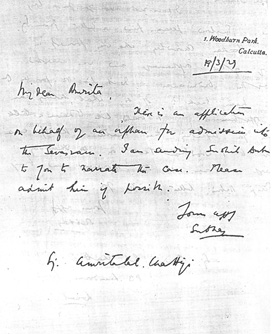 1. Woodburn Park.
Calcutta.
18/3/29
My dear Amrita,
There is an application
on behalf of an orphan for admission into
the Sevasram. I am sending Sushil Babu
to you to narrate the case. Please
admit him if possible.
Yours affly
Subhas
Sj. Amritalal Chatterji